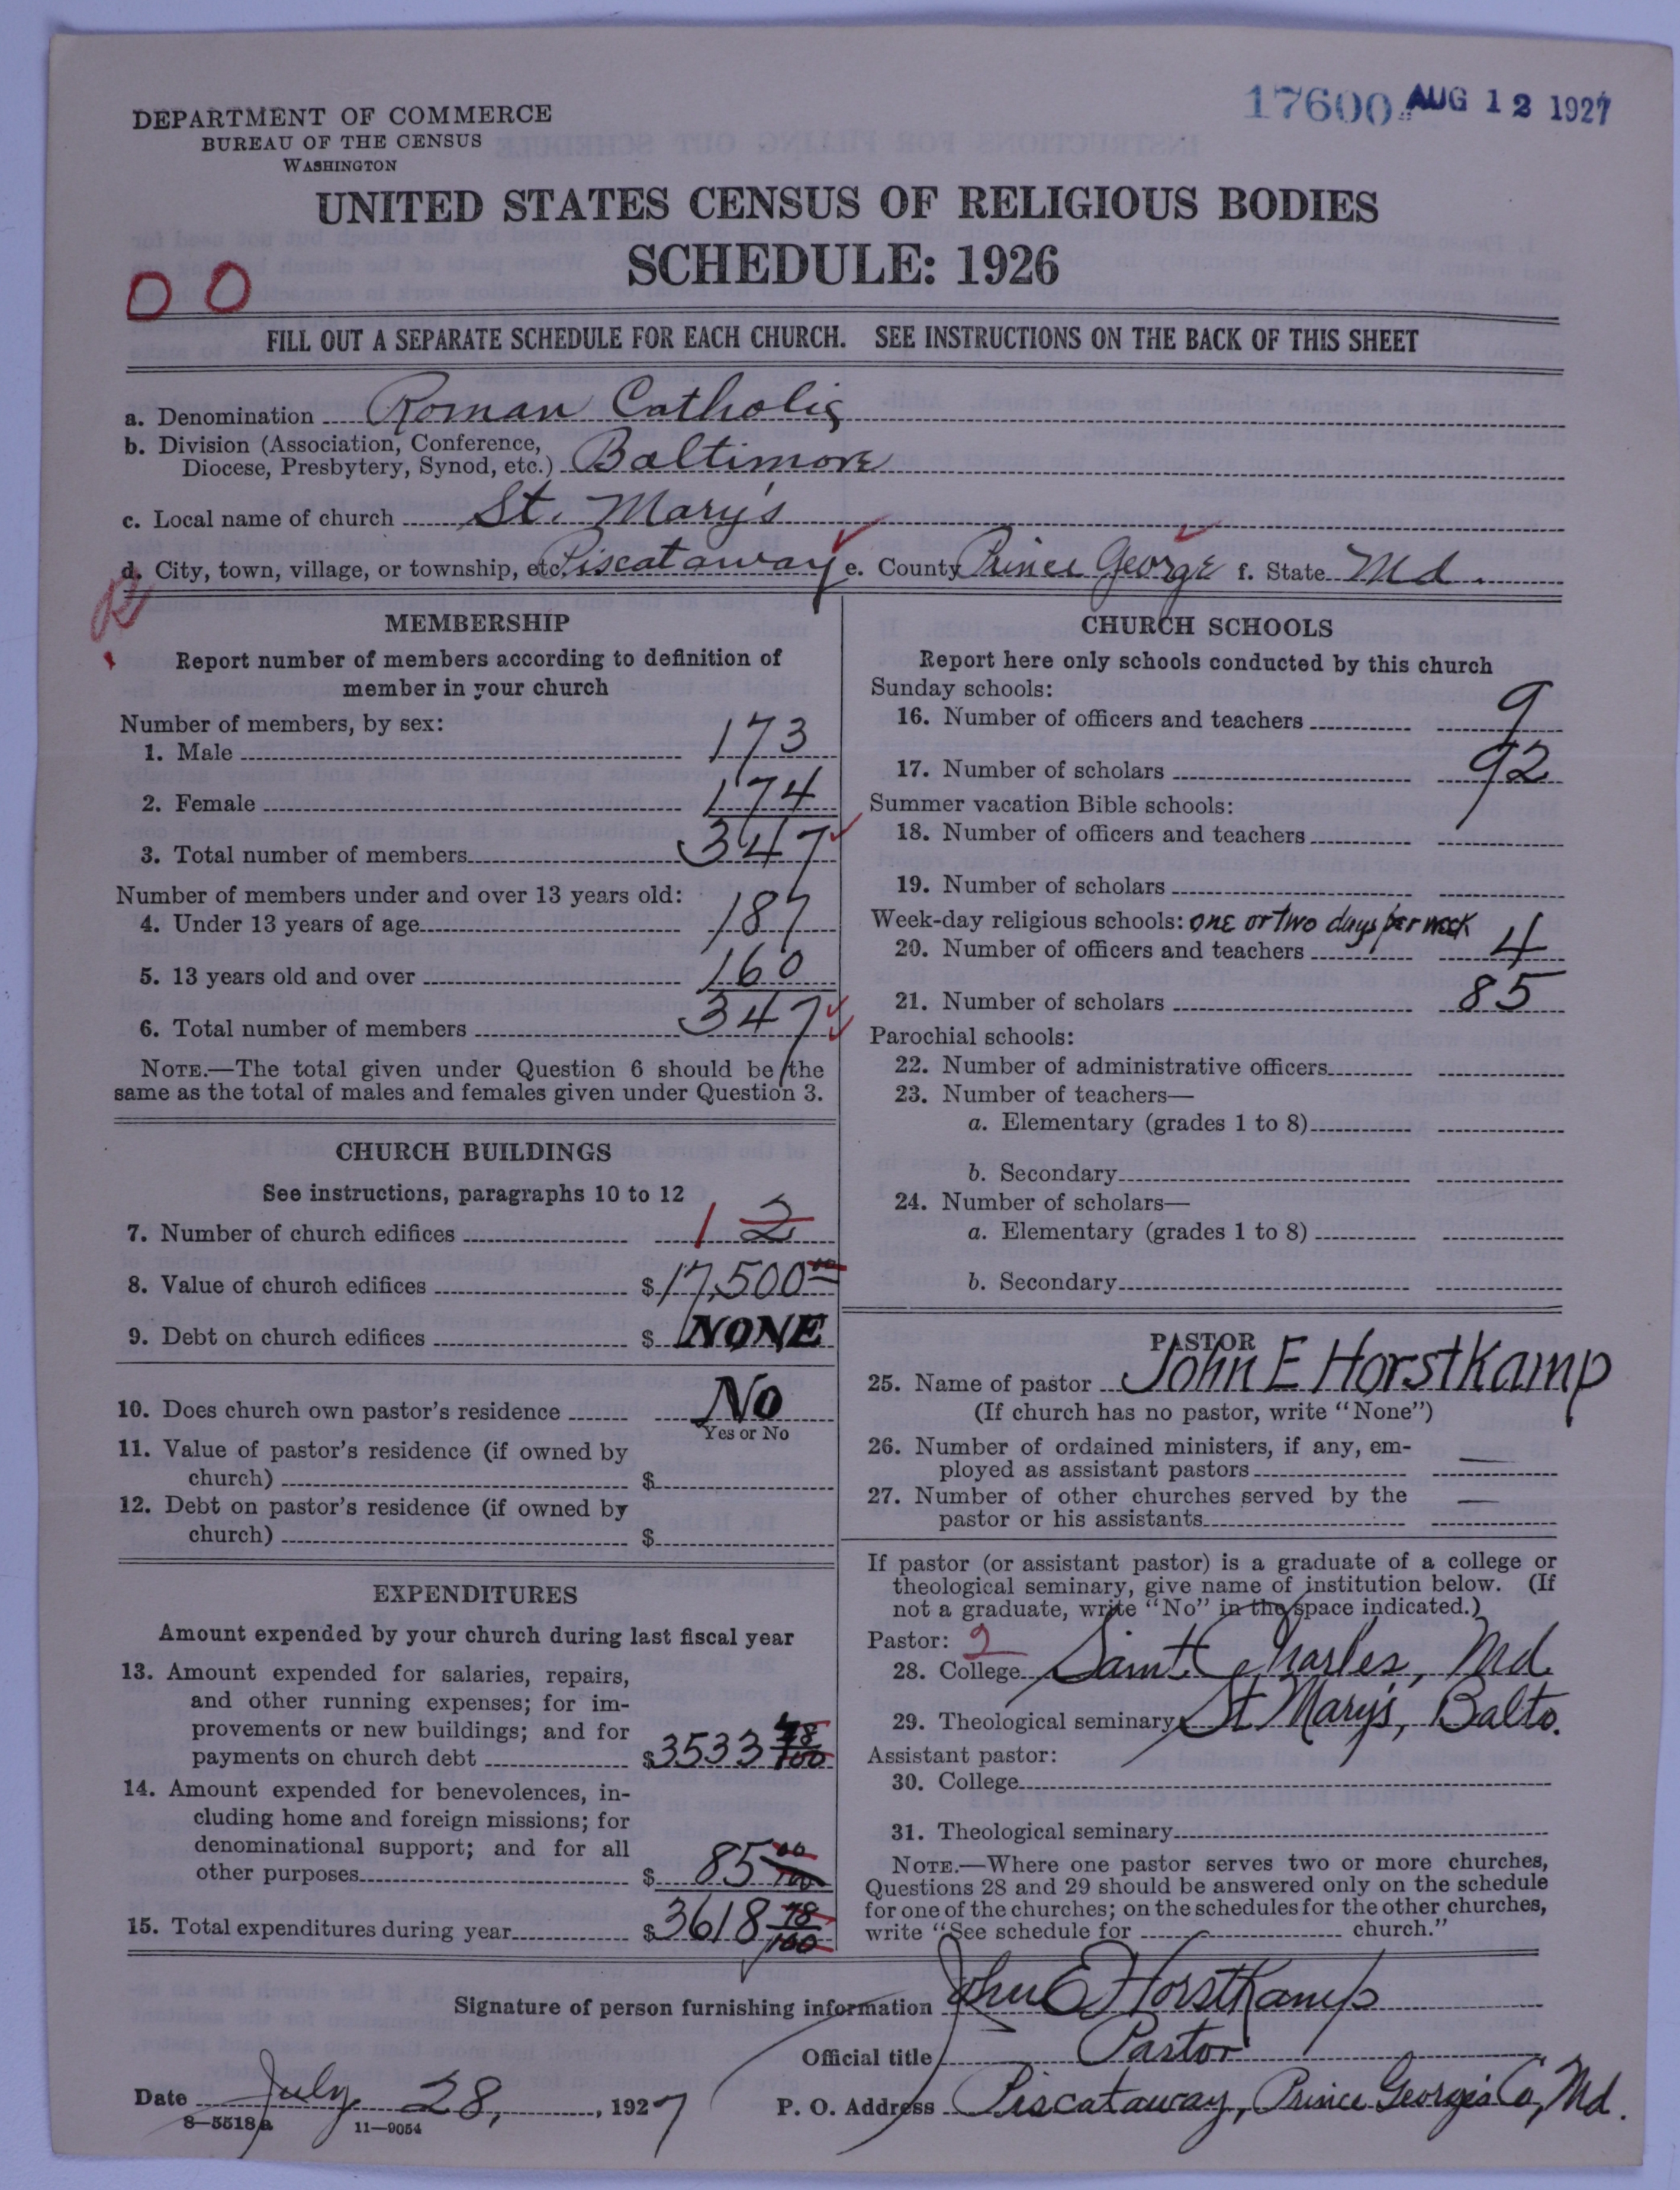 17600 AUG 12 1927
DEPARTMENT OF COMMERCE
BUREAU OF THE CENSUS
WASHINGTON
UNITED STATES CENSUS OF RELIGIOUS BODIES
SCHEDULE: 1926
00
FILL OUT A SEPARATE SCHEDULE FOR EACH CHURCH. SEE INSTRUCTIONS ON THE BACK OF THIS SHEET
a. Denomination Roman Catholic
b. Division (Association, Conference,
Diocese, Presbytery, Synod, etc.) Baltimore
c. Local name of church St. Mary's
d. City, town, village, or township, etc. Piscataway e. County Prince George f. State Md.
MEMBERSHIP
Report number of members according to definition of
member in your church
Number of members, by sex:
1. Male 173
2. Female 174
3. Total number of members 347
Number of members under and over 13 years old:
4. Under 13 years of age 187
5. 13 years old and over 160
6. Total number of members 347
NOTE.—The total given under Question 6 should be the
same as the total of males and females given under Question 3.
CHURCH BUILDINGS
See instructions, paragraphs 10 to 12
7. Number of church edifices 1 2
8. Value of church edifices $17,500 00
9. Debt on church edifices $ NONE
10. Does church own pastor's residence No
Yes or No
11. Value of pastor's residence (if owned by
church) $
12. Debt on pastor's residence (if owned by
church) $
EXPENDITURES
Amount expended by your church during last fiscal year
13. Amount expended for salaries, repairs,
and other running expenses; for im-
provements or new buildings; and for
payments on church debt $3533 48/100
14. Amount expended for benevolences, in-
cluding home and foreign missions; for
denominational support; and for all
other purposes $ 85 00/100
15. Total expenditures during year $3618 48/100
CHURCH SCHOOLS
Report here only schools conducted by this church
Sunday schools:
16. Number of officers and teachers 9
17. Number of scholars 92
Summer vacation Bible schools:
18. Number of officers and teachers
19. Number of scholars
Week-day religious schools: one or two days per week
20. Number of officers and teachers 4
21. Number of scholars 85
Parochial schools:
22. Number of administrative officers
23. Number of teachers—
a. Elementary (grades 1 to 8)
b. Secondary
24. Number of scholars—
a. Elementary (grades 1 to 8)
b. Secondary
PASTOR
25. Name of pastor John E Horstkamp
(If church has no pastor, write "None")
26. Number of ordained ministers, if any, em-
ployed as assistant pastors —
27. Number of other churches served by the
pastor or his assistants —
If pastor (or assistant pastor) is a graduate of a college or
theological seminary, give name of institution below. (If
not a graduate, write "No" in the space indicated.)
Pastor: 2
28. College Saint Charles, Md.
29. Theological seminary St Mary's, Balto.
Assistant pastor:
30. College
31. Theological seminary
NOTE.—Where one pastor serves two or more churches,
Questions 28 and 29 should be answered only on the schedule
for one of the churches; on the schedules for the other churches,
write "See schedule for church."
Signature of person furnishing information John E Horstkamp
Official title Pastor
Date July 28, 1927 P. O. Address Piscataway, Prince George's Co, Md.
8—5518a 11—9054